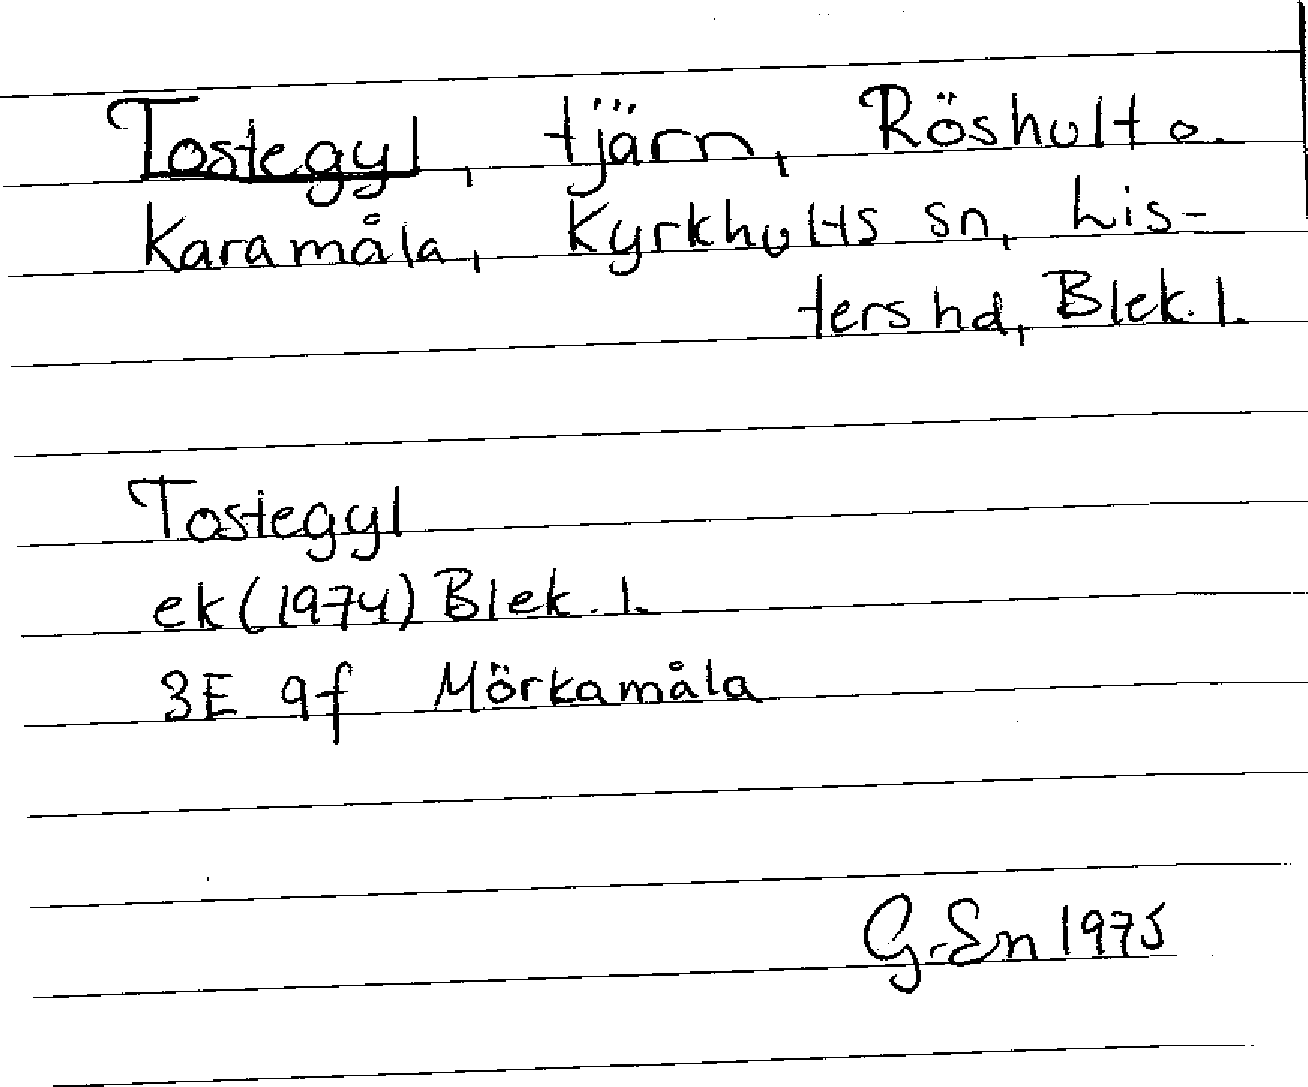 Tostegyl, tjärn, Rösholt o.
Karamåla, Kyrkhults sn, Lis-
ters hd, Blek. l.
Tostegyl
ek (1974) Blek. l.
3E 9f Mörkamåla
G. En 1975